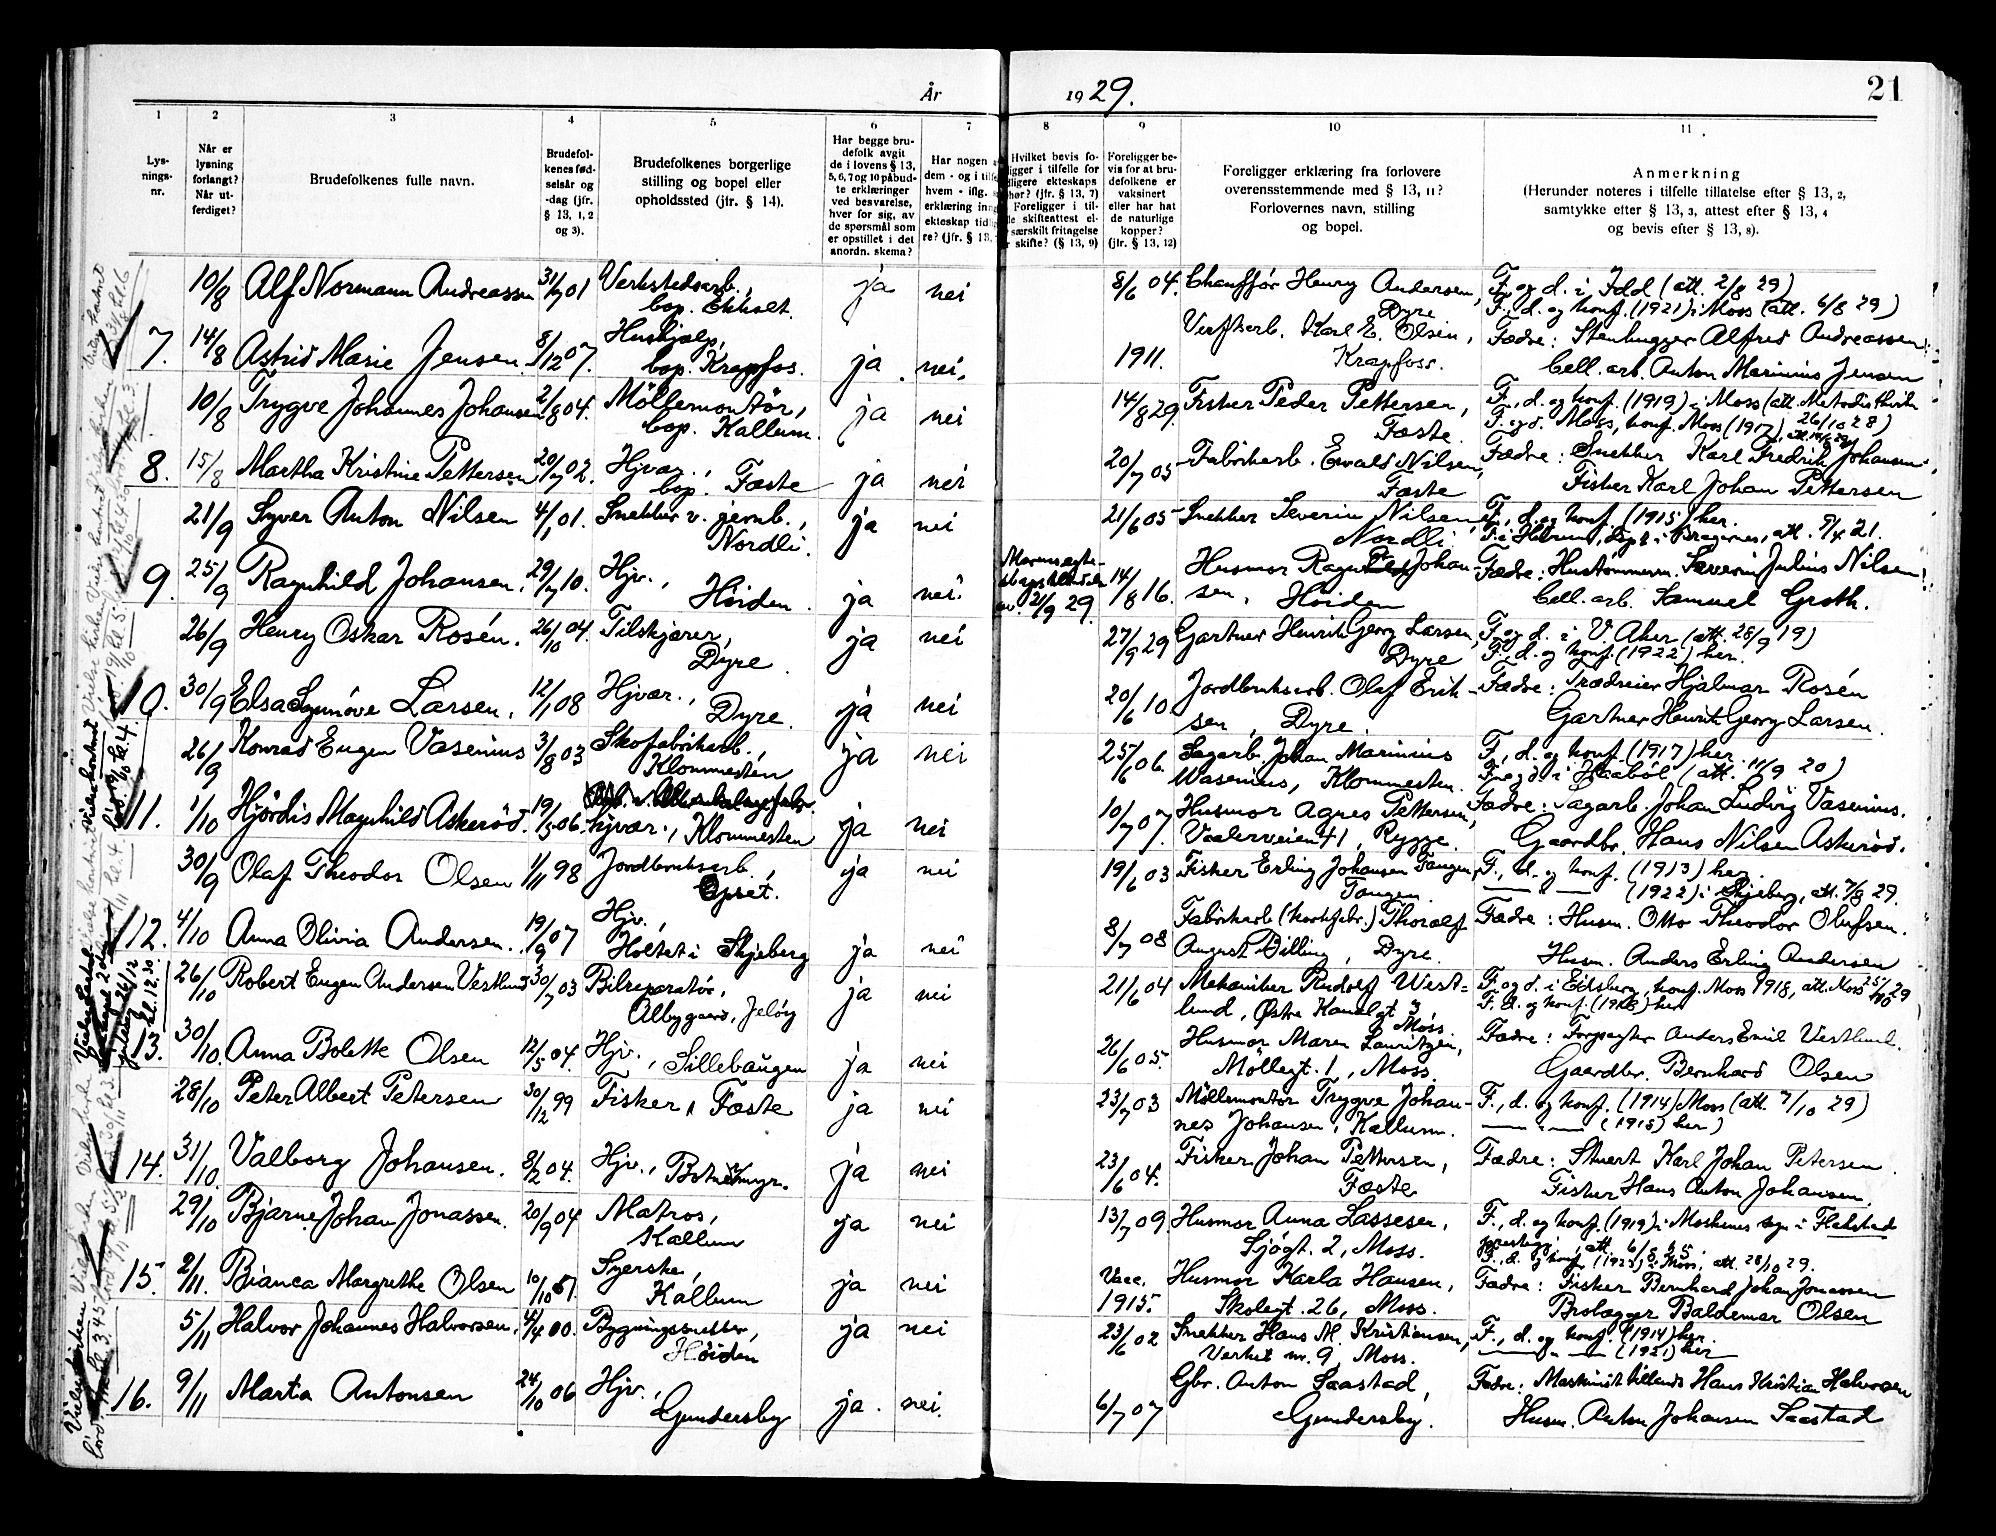 År 1929.
21
1 2 3 4 5 6 7 8 9 10 11
Lys-
nings-
nr.
Når er
lysning
forlangt?
Når ut-
ferdiget?
Brudefolkenes fulle navn.
Brudefol-
kenes fød-
selsår og
-dag (jfr.
§ 13, 1, 2
og 3).
Brudefolkenes borgerlige
stilling og bopel eller
opholdssted (jfr. § 14).
Har begge bru-
defolk avgit
de i lovens § 13,
5, 6, 7 og 10 påbud-
te erklæringer
ved besvarelse,
hver for sig, av
de spørsmål som
er opstillet i det
anordn. skema?
Har nogen
dem - og i tilf
hvem - iflg.
erklæring inng
ekteskap tidli
re? (jfr. § 13,
Hvilket bevis fo-
ligger i tilfelle for
dligere ekteskaps
hør? (jfr. § 13, 7)
Foreligger i til-
le skifteattest el-
særskilt fritagelse
skifte? (§ 13, 9)
Foreligger be-
vis for at bru-
defolkene er
vaksinert
eller har hat
de naturlige
kopper?
(jfr. § 13, 12)
Foreligger erklæring fra forlovere
overensstemmende med § 13, 11?
Forlovernes navn, stilling
og bopel.
Anmerkning
(Herunder noteres i tilfelle tillatelse efter § 13, 2,
samtykke efter § 13, 3, attest efter § 13, 4
og bevis efter § 13, 8).
10/8 Alf Normann Andreassen 31/7 01 Verkstedsarb., ja nei 8/6 04. Chauffør Henry Andersen, F. og d. i Idd (att. 2/8 29)
bop. Ekholt. Dyre F., d. og konf. (1921) i Moss (att. 6/8 29)
7. 14/8 Astrid Marie Jensen 8/12 07. Hushjelp, ja nei. 1911. Verftarb. Karl E. Olsen, Fædre: Stenhugger Alfred Andreassen
bop. Krapfos. Krapfoss. Cell. arb. Anton Marinius Jensen
10/8 Trygve Johannes Johansen 2/8 04. Möllemontör, ja nei 14/8 29. Fisker Peder Pettersen, F., d. og konf. (1919) i Moss (att. Metodistkirken
bop. Kallum. Fæste. 26/10 28)
F. og d. Moss, konf. Moss (1917)
8. 15/8 Martha Kristine Pettersen 20/7 02. Hjvær., ja nei 20/7 05 Fabrikarb. Ewald Nilsen, Fædre: Snekker Karl Fredrik Johansen
bop. Fæste Fæste Fisker Karl Johan Pettersen
21/9 Syver Anton Nilsen 4/1 01. Snekker v. jernb., ja nei 21/6 05 Snekker Severin Nilsen F., d. og konf. (1915) her.
Nordli. Nordli F. i Hurum, døpt i Bragernes, att. 5/4 21.
9. 25/9 Ragnhild Johansen. 29/7 10. Hjv., ja nei. 21/9 29. 14/8 16. Husmor Johan- Fædre: Hustømmerm. Severin Julius Nilsen
Höiden. sen, Höiden Cell. arb. Samuel Groth.
26/9 Henry Oskar Rosén. 26/10 04. Tilskjærer, ja nei 27/9 29 Gartner Henrik Georg Larsen, F. og d. i V. Aker (att. 28/9 19)
Dyre. Dyre F., d. og konf. (1922) her.
10. 30/9 Elsa Synnöve Larsen. 12/1 08 Hjvær., ja nei 20/6 10. Jordbruksarb. Olaf Erik- Fædre: Trædreier Hjalmar Rosén
Dyre. sen, Dyre. Gartner Henrik Georg Larsen.
26/9 Konrad Eugen Vasenius 3/8 03 Skofabrikarb., ja nei 25/6 06. Sagarb. Johan Marinius F., d. og konf. (1917) her.
Klommestén Wasenius, Klommesten. F. og d. i Haaböl (att. 11/9 20)
11. 1/10 Hjördis Magnhild Askeröd. 19/5 06. Hjvær., Klommesten ja nei 10/7 07. Husmor Agnes Pettersen, Fædre: Sagarb. Johan Ludvig Vasenius.
Vaalerveien 41, Rygge. Gaardbr. Hans Nilsen Askeröd.
30/9 Olaf Theodor Olsen 1/11 98 Jordbruksarb., ja nei 19/6 03 Fisker Erling Johansen Tangen, F., d. og konf. (1913) her.
Opset. Tangen. (1922) i Skjeberg, att. 7/8 29.
12. 4/10 Anna Olivia Andersen. 19/9 07 Hjv., ja nei 8/7 08 Fabrikarb. (korkfabr.) Thoralf Fædre: Husm. Otto Theodor Olufsen.
Holtet i Skjeberg August Billing, Dyre. Husm. Anders Erling Andersen
26/10 Robert Eugen Andersen Vestlund 30/7 03 Bilreparatör, ja nei 21/6 04 Mekaniker Rudolf West- F. og d. i Eidsberg, konf. Moss 1918, att. Moss 25/10 29
Albygaard, Jelöy lund, Østre Kanalgt 3 F. d. og konf. her
Moss.
13. 30/10. Anna Bolette Olsen 12/5 04. Hjv., Sillebaugen ja nei 26/6 05. Husmor Maren Lauritzen, Fædre: Forpagter Anders Emil Vestlund.
Möllegt. 1, Moss Gaardbr. Bernhard Olsen
28/10 Peter Albert Petersen 30/12 99 Fisker, Fæste ja nei 23/7 03 Möllemontör Trygve Johan- F., d. og konf. (1914) Moss (att. 7/10 29)
nes Johansen, Kallum. (1915) her)
14. 31/10. Valborg Johansen. 8/2 04. Hjv., ja nei 23/6 04. Fisker Johan Pettersen, Fædre: Stuert Karl Johan Petersen.
Fæste Fisker Hans Anton Johansen.
29/10 Bjarne Johan Jonassen. 20/9 04 Matros, ja nei 13/7 09. Husmor Anna Lassesen, F., d. og konf. (1919) i Moskenes sogn i Flakstad
Kallum Sjögt. 2, Moss. prestegj., att. 6/8 25
F., d. og konf. (1922) i Moss, att. 28/10 29.
15. 2/11. Bianca Margrethe Olsen 10/10 Syerske, ja nei Vacc. Husmor Karla Hansen, Fædre: Fisker Bernhard Johan Jonassen
Kallum 1915. Skolegt. 26, Moss. Brolægger Baldemar Olsen
5/11 Halvor Johannes Halvorsen. 4/4 00. Bygningssnekker, ja nei 23/6 02 Snekker Hans M. Kristiansen, F., d. og konf. (1914) her.
Höiden Verket nr. 9, Moss. (1921) her
16. 9/11 Marta Antonsen 24/10 06 Hjv., ja. nei. 6/7 07 Gbr. Anton Saastad, Fædre: Maskinist Hans Kristian Halvorsen
Gundersby Gundersby. Husm. Anton Johansen Saastad